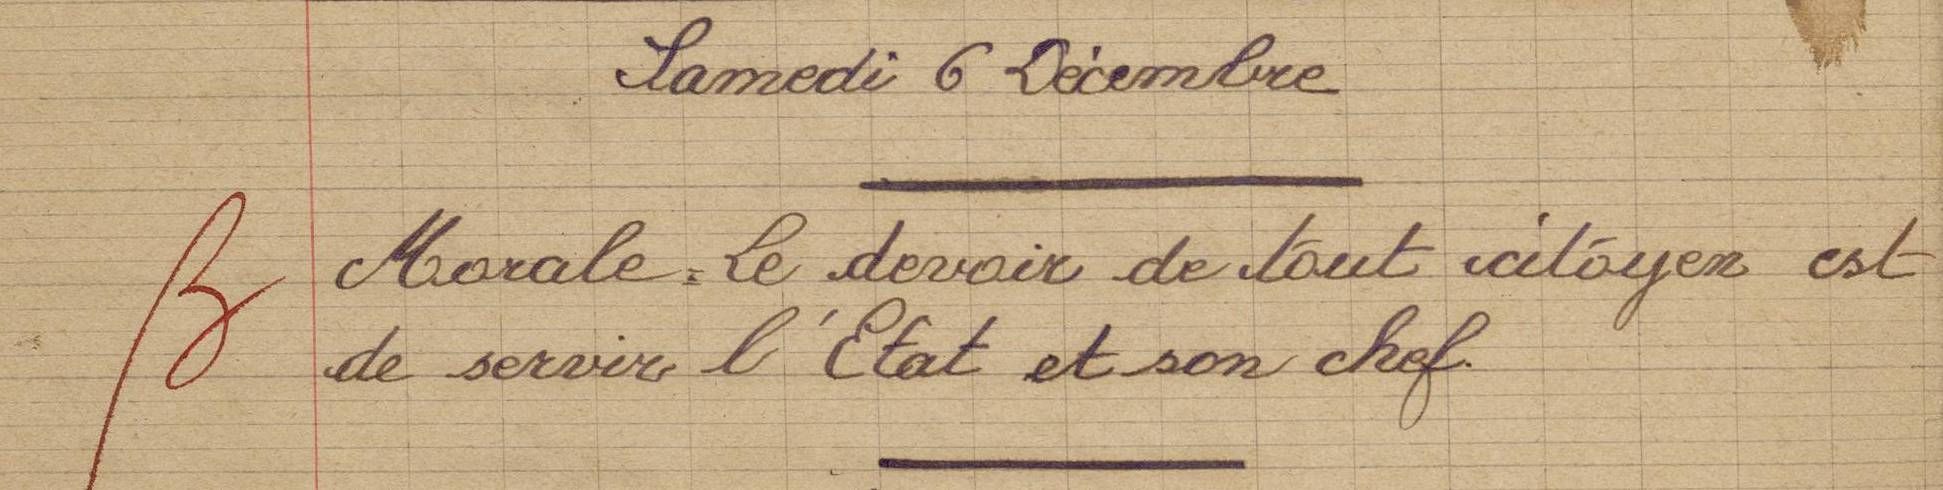 Samedi 6 Décembre
B Morale : Le devoir de tout citoyen est
de servir l'Etat et son chef.